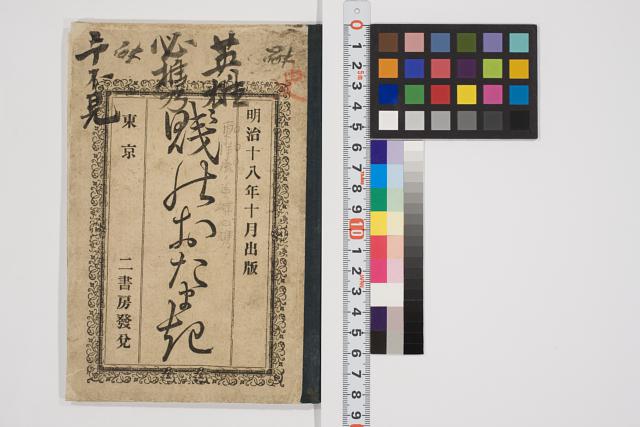 明治十八年十月出版
賤のおだまき
東京 二書房發兌
英雄
必携
0 1 2 3 4 5 6 7 8 9 10 1 2 3 4 5 6 7 8 9